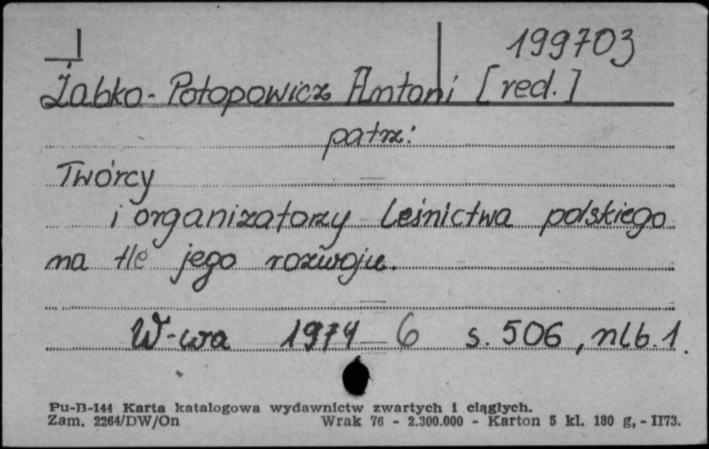 199703
Żabko-Potopowicz Antoni [red.]
patrz:
Twórcy
i organizatorzy leśnictwa polskiego
na tle jego rozwoju.
W-wa 1974 6 s. 506, nlb. 1.
Pu-B-144 Karta katalogowa wydawnictw zwartych i ciągłych.
Zam. 2264/DW/On Wrak 76 - 2.300.000 - Karton 5 kl. 180 g, - II73.